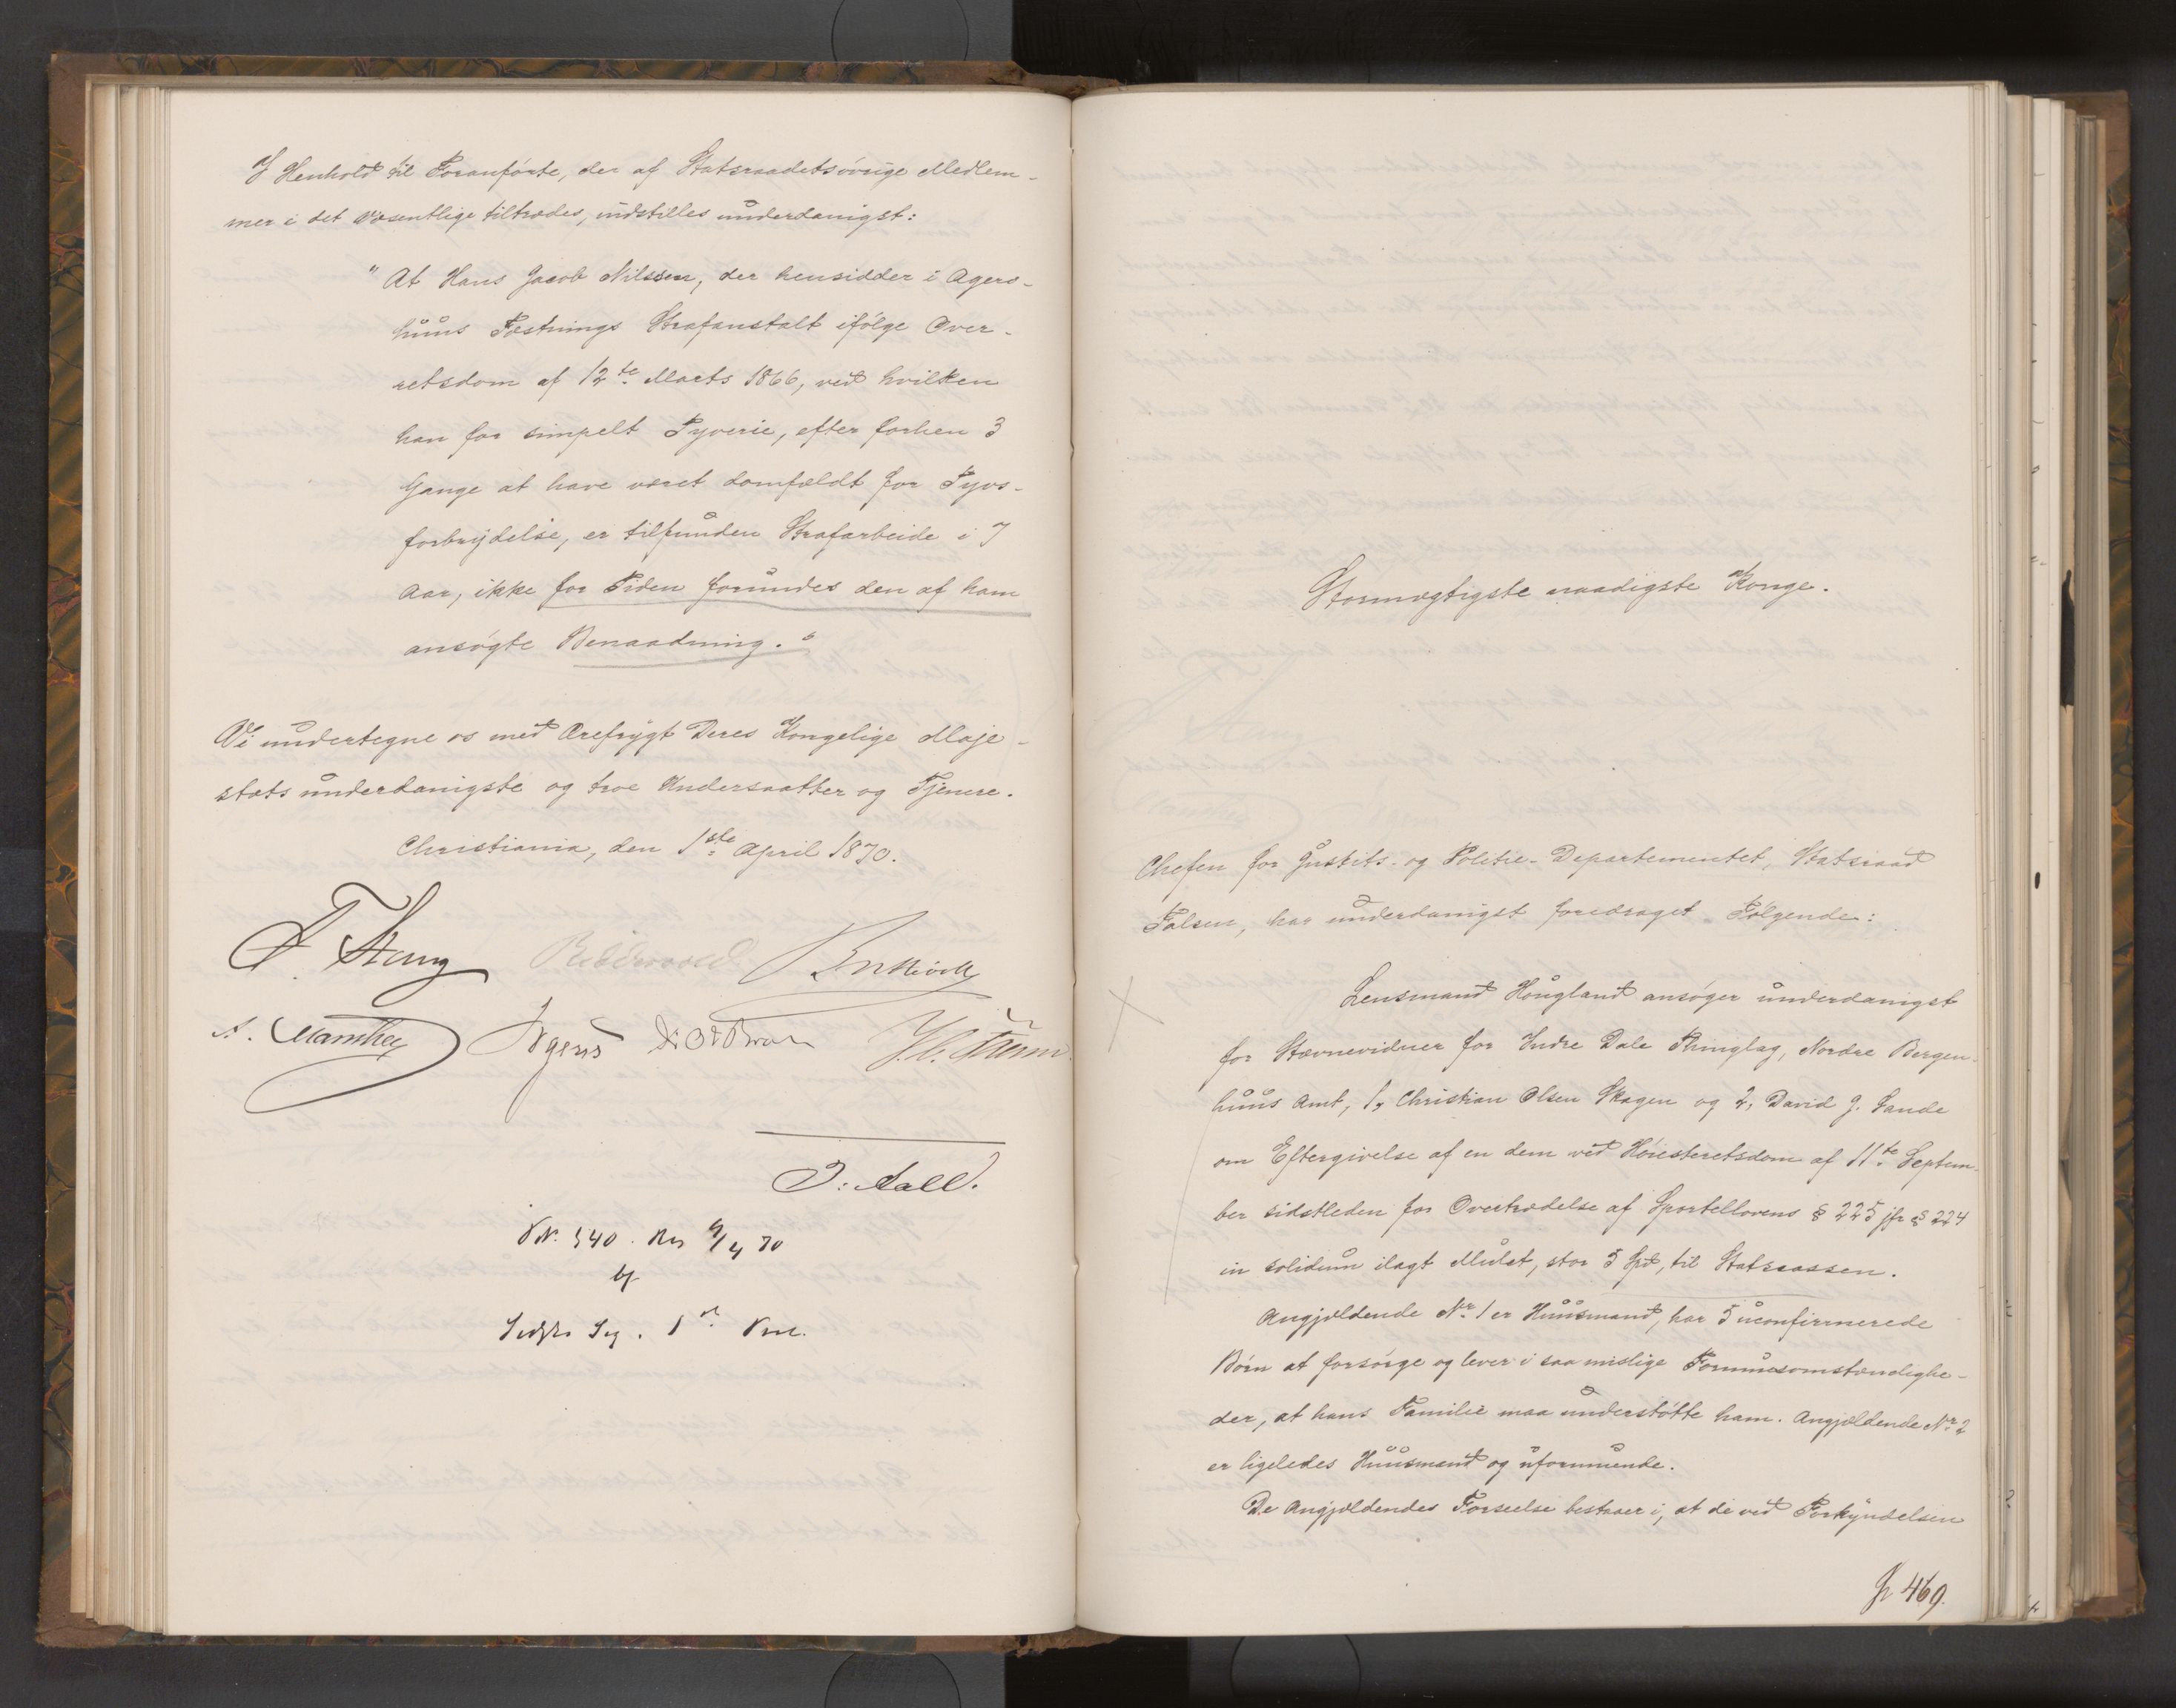 I Henhold til Foranførte, der af Statsraadets øvrige Medlem-
mer i det Væsentlige tiltrædes, indstilles underdanigst:
"At Hans Jacob Nilssen, der hensidder i Agers-
huus Fæstnings Strafanstalt ifølge Over-
retsdom af 12te Marts 1866, ved hvilken
han for simpelt Tyverie, efter forhen 3
Gange at have været domfældt for Tyvs-
forbrydelse, er tilfunden Strafarbeide i 7
Aar, ikke for Tiden forundes den af ham
ansøgte Benaadning."
Vi undertegne os med Ærefrygt Deres Kongelige Maje-
stæts underdanigste og troe Undersaatter og Tjenere.
Christiania, den 1ste April 1870.
F. Stang Riddervold Bretteville
A. Manthey Irgens
J. Aall.
No. 540. 9/4 70
Stormægtigste naadigste Konge.
Chefen for Justits- og Politie-Departementet, Statsraad
Falsen, har underdanigst foredraget Følgende:
Lensmand Hougland ansøger underdanigst
for Stævnevidner for Indre Dale Thinglag, Nordre Bergen-
huus Amt, 1, Christian Olsen Skagen og 2, David J. Sande
om Eftergivelse af en dem ved Høiesteretsdom af 11te Septem-
ber sidstleden for Overtrædelse af Sportellovens § 225 jfr § 224
in solidum ilagt Mulct, stor 5 Spd, til Statscassen.
Angjældende No 1 er Huusmand, har 5 uconfirmerede
Børn at forsørge og lever i saa mislige Formuesomstændighe-
der, at hans Familie maa understøtte ham. Angjældende No 2
er ligeledes Huusmand og uformuende.
De Angjældendes Forseelse bestaaer i, at de ved Forkyndelsen
Jr 469.